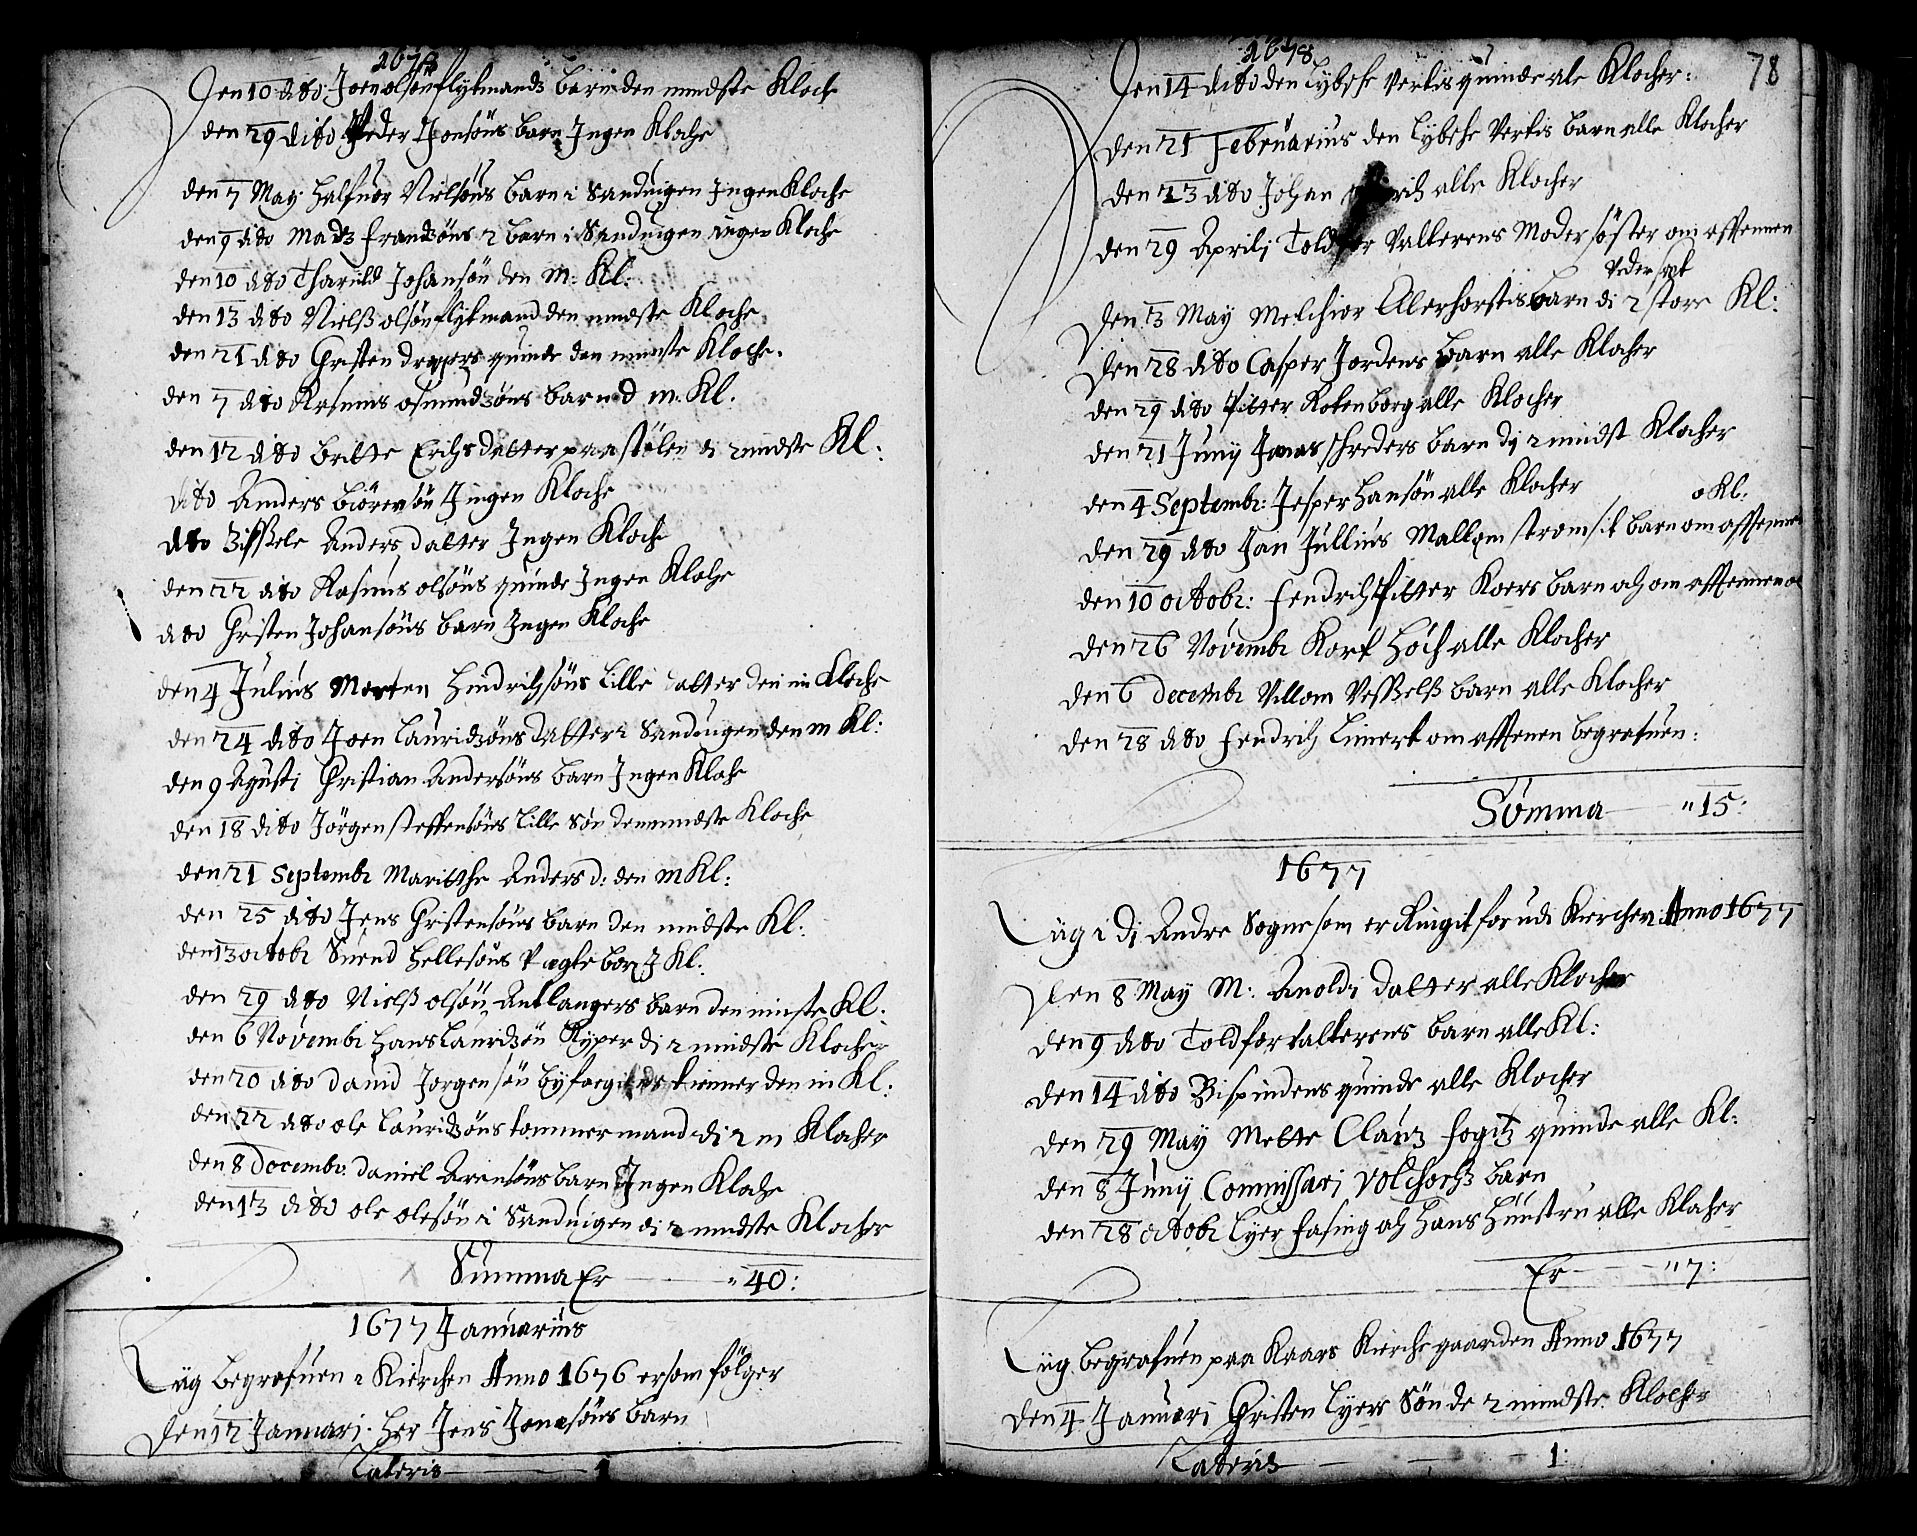 1678
Den 10 dito Joen olsön flÿtmands barn den mindste Kloch
den 29 dito Peder Jonsöns barn Jngen Kloche
den 7 Maÿ Halfuor Nielsöns barn i Sanduigen JngenKloche
den 9 dito Madz frandzöns 2 barn i Sanduigen ingen Kloche
den 10 dito Tharald Johansön den m: Kl:
den 13 dito Nielß olsön flÿtmand den mindste Kloche
den 21 dito Christen dreÿers quinde den minste Kloche.
den 7 dito Rasmus osmundzöns barn d m. Kl.
den 12 dito Britte Erichs datter paa stölen di 2 mindste Kl:
dito Anders biörensön Jngen Kloche
dito Zißele Anders datter Jngen Kloche
den 22 dito Rasmus olsöns quinde Jngen Kloche
dito Christen Johansöns barn Jngen Kloche
den 4 Julius Morten Hindrichsöns Lille datter den m Kloche
den 24 dito Joen Lauridzöns datter i Sanduigen den m Kl:
den 9 Agusti Christian Andersöns barn Jngen Kloche
den 18 dito Jörgen steffensöns Lille Sön den mindste Kloche
den 21 Septembr Maritthe Anders d: den m Kl:
den 25 dito Jens Christensöns barn den mindste Kl:
den 13 octobr Suend Hellesöns barn J Kl:
den 29 dito Nielß olsön Antlangers barn den minste Kl:
den 6 Novembr Hans Lauridzön Kÿper di 2 mindste Klocher
den 20 dito david Jorgensön bÿfoegitds tienner den m Kl:
den 22 dito ole Lauridzöns tommermand di 2 m Klocher
den 8 decembr. daniel Arensöns barn Jngen Kloche
den 13 dito ole olesön i Sanduigen di 2 mindste Klocher
Summa Er " 40:
1677 Januarius
Liig begrafuen i Kierchen Anno 1676 er som fölger
Den 12 Januarj. Her Jens Jonesöns barn
Lateris 1
1678
78
Den 14 dito den Lÿbske Vertis quinde ale Klocher:
den 21 Februarius den Lÿbske Vertis barn alle Klocher
den 23 dito Johan alle Klocher
den 29 Aprilj Told Valterens Moder söster om afftennen
Den 3 Maÿ Melchior Alerhorstis barn di 2 store Kl:
Den 28 dito Casper Jordens barn alle Klocher
den 29 dito Pitter Rotenborg alle Klocher
den 21 Junÿ Jonas schreders barn dj 2 mindst Klocher
den 4 Septembr: Jesper Hansön alle Klocher
o Kl:
den 29 dito Jan Jullius Mallom stroms it barn om afftennen
den 10 octobr: Hendrich Pitter Koers barn och om afftennen
den 26 Novembr Kort Höch alle Klocher
den 6 decembr Villom Veßelß barn alle Klocher
den 28 dito Hendrich Limert om afftenen begrafuen:
Summa " 15:
1677
Liig i dj Andre Sogne som er Ringit for udi Kierchen Anno 1677
Den 8 Maÿ M: Anoldj datter alle Klocher
den 9 dito Toldforvalterens barn alle Kl:
den 14 dito Bispindens quinde alle Klocher
den 29 Maÿ Mette Clauz fogitz quinde alle Kl:
den 8 Junÿ Commissarj Volchorß barn
den 28 octobr Lÿer Fasing och Hans Hüustru alle Klocher
Er " 7:
Liig begrafuen paa Kaars Kierche gaarden Anno 1677
Den 4 Januari Christen Lÿers Sön de 2 mindste Klocher
Lateris 1: